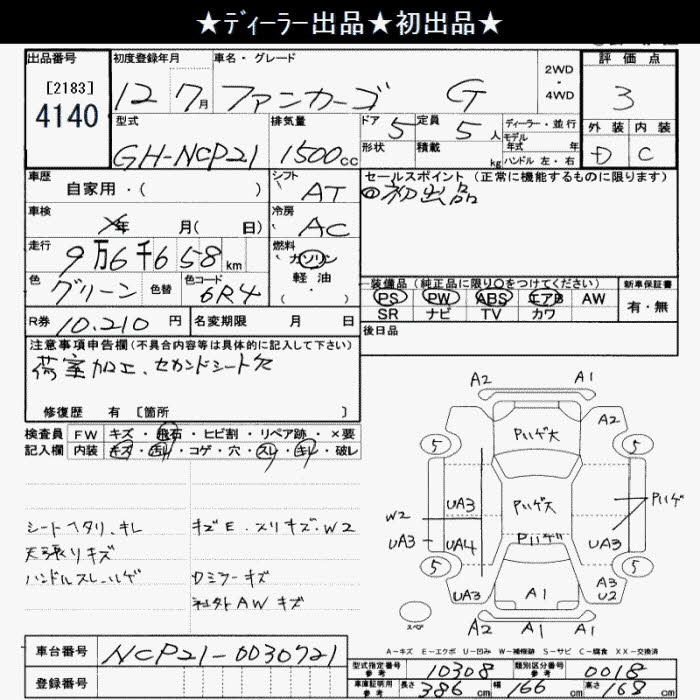 ★ディーラー出品★初出品★
出品番号
[2183]
4140
初度登録年月
12 7月
車名・グレード
ファンカーゴ G
2WD
・
4WD
評価点
3
外装 内装
D C
型式
GH-NCP21
排気量
1500cc
ドア 5
定員 5人
形状
積載 kg
ディーラー・並行
モデル
年式 年
ハンドル 左・右
車歴
自家用・( )
シフト
AT
セールスポイント(正常に機能するものに限ります)
初出品
車検
年 月( 日)
冷房
AC
走行
9万6千658km
燃料
ガソリン
軽油
・
色
グリーン
色替
色コード
6R4
装備品(純正品に限り○をつけてください)
PS PW ABS エアB AW
SR ナビ TV カワ
新車保証書
有・無
R券 10.210円
名変期限 月 日
後日品
注意事項申告欄(不具合内容等は具体的に記入して下さい)
荷室加工、セカンドシート欠
修復歴 有 [箇所 ]
検査員
記入欄
FW キズ・飛石・ヒビ割・リペア跡・×要
内装 キズ・汚れ・コゲ・穴・スレ・キレ・破レ
シートヘタリ、キレ
天張りキズ
ハンドルスレ、ハゲ
キズE・スリキズ・W2
ロミラーキズ
社外AW キズ
A2 A1
A2
Pハゲ大
5 5
UA3 Pハゲ大 Pハゲ
W2
UA3 UA4 Pハゲ UA3
5 5
UA3 A1 A3
U2
スペア
A2 A1 A1
A-キズ E-エクボ U-凹み W-補修跡 S-サビ C-腐食 XX-交換済
車台番号 NCP21-0030721
登録番号
型式指定番号
参考
10308
類別区分番号
参考
0018
車庫証明用
参考
長さ 386cm 幅 166cm 高さ 168cm